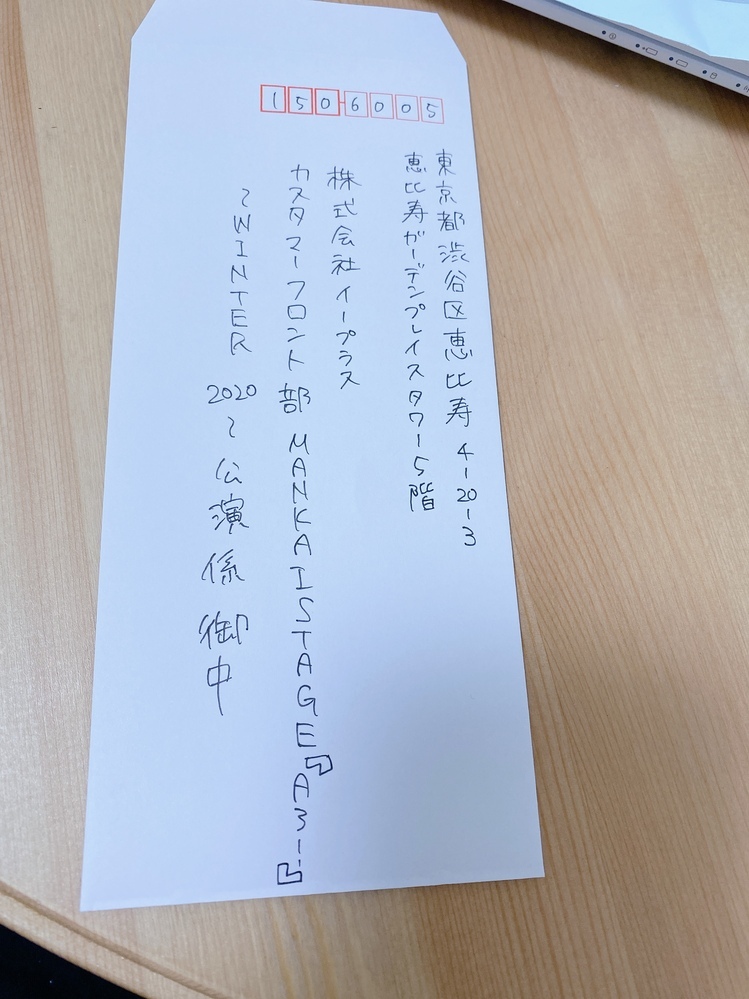 1506005
東京都渋谷区恵比寿4-20-3
恵比寿ガーデンプレイスタワー5階
株式会社イープラス
カスタマーフロント部 MANKAI STAGE『A3!』
~WINTER 2020~公演係 御中